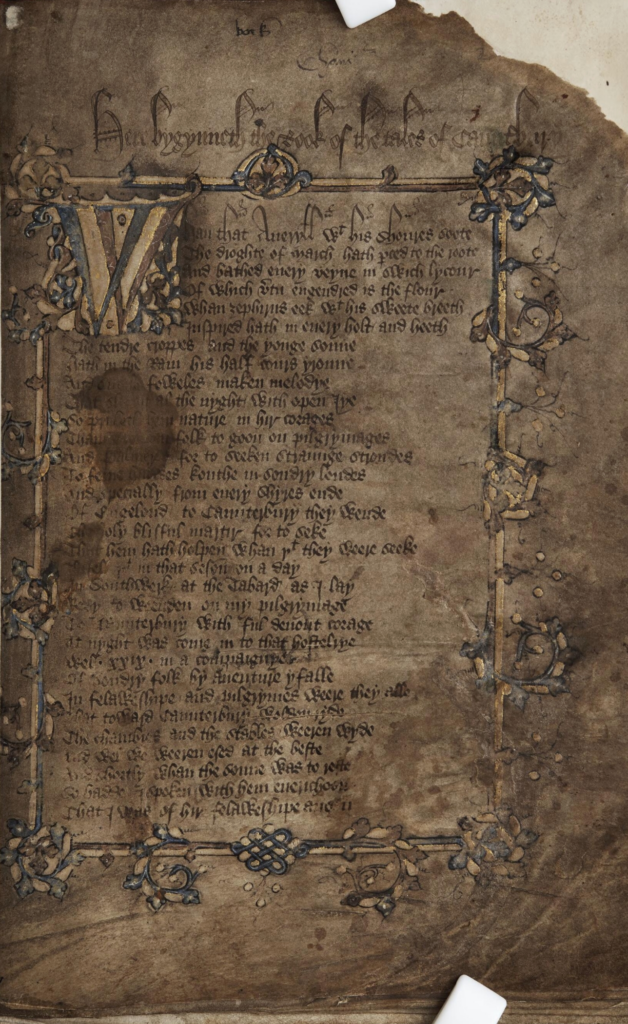 Here bygynneth the Book of the tales of Caunterbury
Whan that Aueryll wt his shoures soote
The droghte of march hath perced to the roote
And bathed euery veyne in swich lycour
Of which vtu engendred is the flour
Whan zephirus eek wt his sweete breeth
Inspired hath in euery holt and heeth
The tendre croppes and the yonge sonne
Hath in the Ram his half cours yronne
foweles maken melodye
al the nyght with open Iye
So nature in hir corages
folk to goon on pilgrymages
And for to seken straunge strondes
To halwes kouthe in sondry londes
And specially from euery shires ende
Of Engelond to Caunterbury they wende
The holy blisful martir for to seke
That hem hath holpen whan yt they weere seeke
yt in that seson on a day
In Southwerk at the Tabard as I lay
Redy to wenden on my pilgrymage
To Caunterbury with ful deuout corage
At nyght was come in to that hostelrye
Wel xxix in a compaignye
Of sondry folk by auenture yfalle
In felaweshipe and pilgrymes weere they alle
That toward Caunterbury wolden ryde
The chambres and the stables weeren wyde
And wel we weeren esed at the beste
And shortly whan the sonne was to reste
So hadde I spoken with hem euerichon
That I was of hir felaweshipe anon